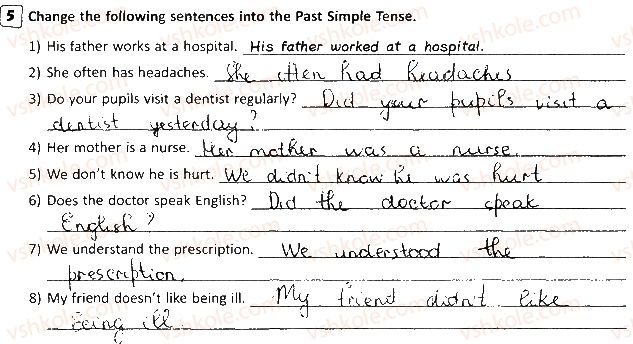 5 Change the following sentences into the Past Simple Tense.
1) His father works at a hospital. His father worked at a hospital.
2) She often has headaches. She often had headaches
3) Do your pupils visit a dentist regularly? Did your pupils visit a
dentist yesterday?
4) Her mother is a nurse. Her mother was a nurse.
5) We don't know he is hurt. We didn't know he was hurt
6) Does the doctor speak English? Did the doctor speak
English?
7) We understand the prescription. We understood the
prescription.
8) My friend doesn't like being ill. My friend didn't like
being ill.